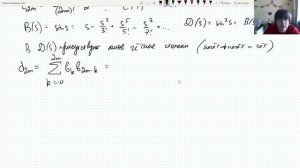 B(s) = sin s = s − s³/3! + s⁵/5! − s⁷/7! + ...
D(s) = sin²s = B(s)
В D(s) присутствуют лишь чётные степени (нечёт + нечёт = чёт)
d₂ₘ = ∑ₖ₌₀²ᵐ bₖ b₂ₘ₋ₖ =